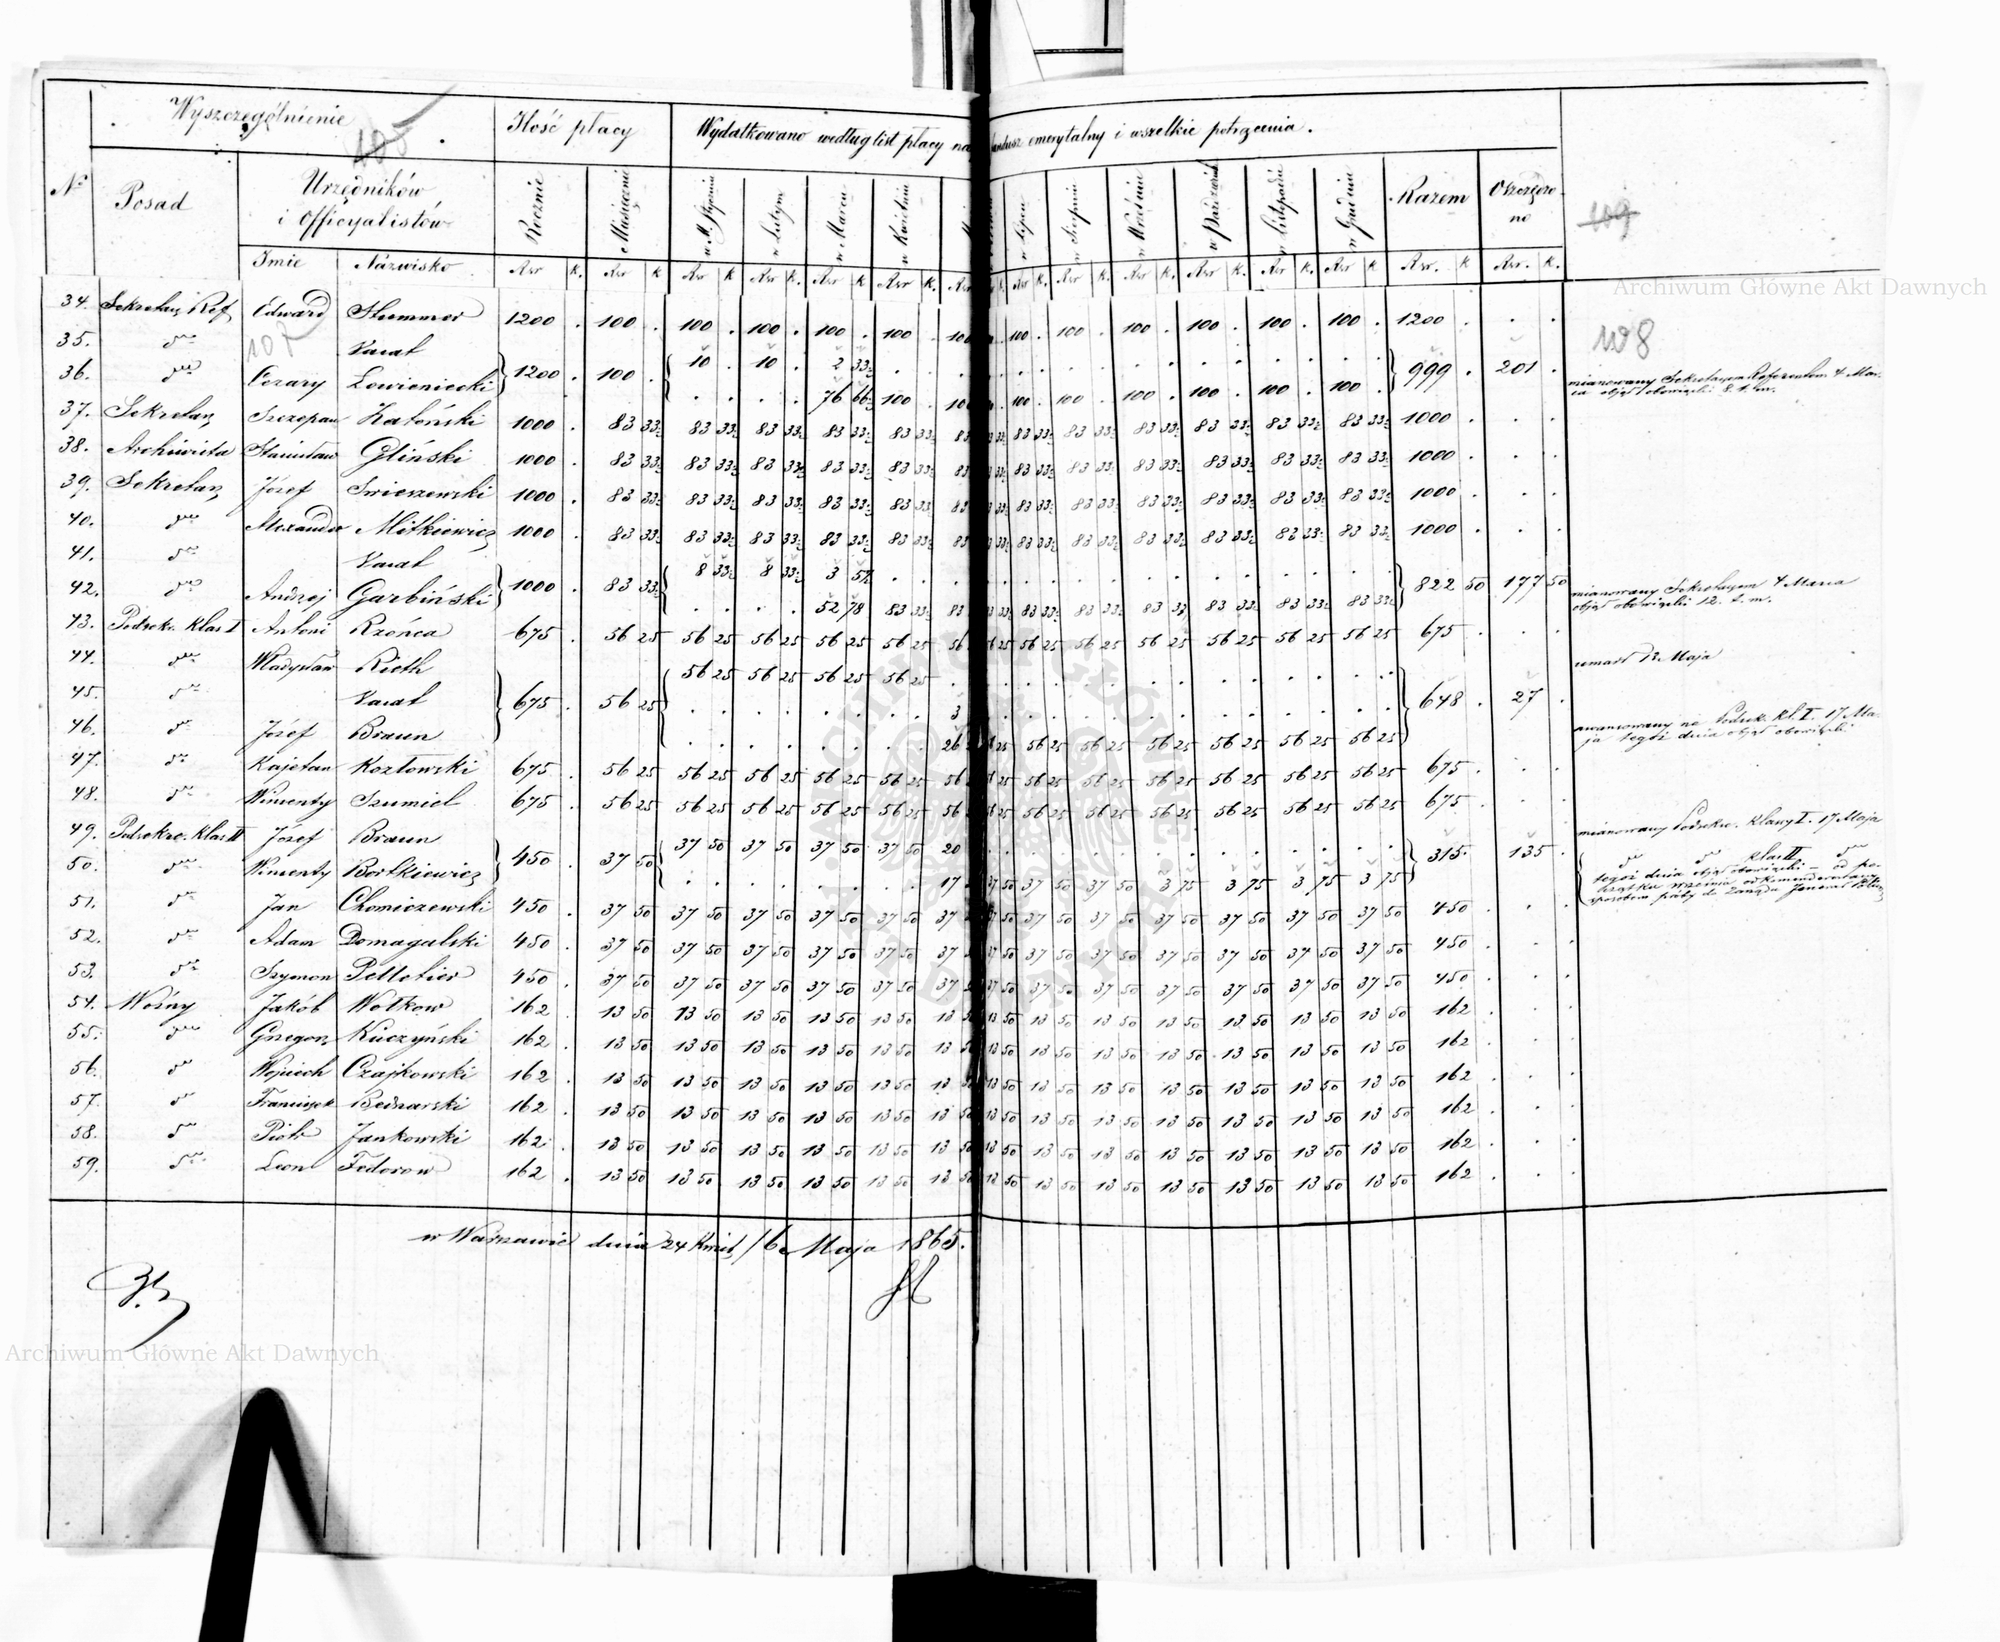 Wyszczególnienie
Ilość płacy
Wydatkowano według list płacy na fundusz emerytalny i wszelkie potrącenia.
105
No
Posad
Urzędników
i Officyalistów
Rocznie
Miesięcznie
w M. Styczniu
w Lutym
w Marcu
w Kwietniu
w Lipcu
w Sierpniu
w Wrześniu
w Październ.
w Listopadzie
w Grudniu
Razem
Oszczędzo-
no
109
Imie Nazwisko Rsr k. Rsr k Rsr k Rsr k. Rsr k Rsr k. Rsr k. Rsr k. Rsr k. Rsr k. Rsr k. Rsr k Rsr. k Rsr. k.
Archiwum Główne Akt Dawnych
108
34. Sekretarz Ref. Edward 1200 . 100 . 100 . 100 . 100 . 100 . 100 100 . 100 . 100 . 100 . 100 . 100 . 1200 . . .
35. dto Vacat 10 . 10 . 2 33
36. dto Cezary Łowieniecki 1200 . 100 . . . . . 76 66 100 . 100 100 . 100 . 100 . 100 . 100 . 100 . 999 . 201 . mianowany Sekretarzem Referentem 4 Mar-
ca objął obowiązki 8 t. m.
37. Sekretarz Szczepan Zatoński 1000 . 83 33 83 33 83 33 83 33 83 33 83 83 33 83 33 83 33 83 33 83 33 83 33 1000 . . .
38. Archiwista Stanisław Gliński 1000 . 83 33 83 33 83 33 83 33 83 33 83 83 33 83 33 83 33 83 33 83 33 83 33 1000 . . .
39. Sekretarz Józef Swieszewski 1000 . 83 33 83 33 83 33 83 33 83 33 83 83 33 83 33 83 33 83 33 83 33 83 33 1000 . . .
40. dto Alexander Mitkiewicz 1000 . 83 33 83 33 83 33 83 33 83 33 83 83 33 83 33 83 33 83 33 83 33 83 33 1000 . . .
41. dto Vacat 8 33 8 33 3 57
42. dto Andrzej Garbiński 1000 . 83 33 . . . . 52 78 83 33 83 83 33 83 33 83 33 83 33 83 33 83 33 822 50 177 50 mianowany Sekretarzem 4 Marca
objął obowiązki 12. t. m.
43. Podsekr. klas I Antoni Rzońca 675 . 56 25 56 25 56 25 56 25 56 25 56 56 25 56 25 56 25 56 25 56 25 56 25 675 . . .
44. dto Władysław Rieth 56 25 56 25 56 25 56 25 umarł 12 Maja
45. dto Vacat 675 . 56 25 3 648 . 27 .
46. dto Józef Braun 26 56 25 56 25 56 25 56 25 56 25 56 25 awansowany na Podsek. kl. I. 17 Ma-
ja tegoż dnia objął obowiązki
47. dto Kajetan Kozłowski 675 . 56 25 56 25 56 25 56 25 56 25 56 56 25 56 25 56 25 56 25 56 25 56 25 675 . . .
48. dto Wincenty Szumiel 675 . 56 25 56 25 56 25 56 25 56 25 56 56 25 56 25 56 25 56 25 56 25 56 25 675 . . .
49. Podsekre. klas II Józef Braun 37 50 37 50 37 50 37 50 20 mianowany Podsekr. klassy I. 17 Maja
50. dto Wincenty Bortkiewicz 450 . 37 50 17 37 50 37 50 3 75 3 75 3 75 3 75 315 . 135 . dto dto klas II dto
tegoż dnia objął obowiązki – od po-
czątku Września odkomenderowany
51. dto Jan Chomiczewski 450 . 37 50 37 50 37 50 37 50 37 50 37 37 50 37 50 37 50 37 50 37 50 37 50 450 . . .
52. dto Adam Domagalski 450 . 37 50 37 50 37 50 37 50 37 50 37 37 50 37 50 37 50 37 50 37 50 37 50 450 . . .
53. dto Szymon Pelletier 450 . 37 50 37 50 37 50 37 50 37 50 37 37 50 37 50 37 50 37 50 37 50 37 50 450 . . .
54. Woźny Jakób Wołkow 162 . 13 50 13 50 13 50 13 50 13 50 13 50 13 50 13 50 13 50 13 50 13 50 13 50 162 . . .
55. dto Grzegorz Kuczyński 162 . 13 50 13 50 13 50 13 50 13 50 13 50 13 50 13 50 13 50 13 50 13 50 13 50 162 . . .
56. dto Wojciech Czajkowski 162 . 13 50 13 50 13 50 13 50 13 50 13 50 13 50 13 50 13 50 13 50 13 50 13 50 162 . . .
57. dto Franciszek Bednarski 162 . 13 50 13 50 13 50 13 50 13 50 13 50 13 50 13 50 13 50 13 50 13 50 13 50 162 . . .
58. dto Piotr Jankowski 162 . 13 50 13 50 13 50 13 50 13 50 13 50 13 50 13 50 13 50 13 50 13 50 13 50 162 . . .
59. dto Leon Fedorow 162 . 13 50 13 50 13 50 13 50 13 50 13 50 13 50 13 50 13 50 13 50 13 50 13 50 162 . . .
w Warszawie dnia 24 Kwiet. / 6 Maja 1865.
Archiwum Główne Akt Dawnych